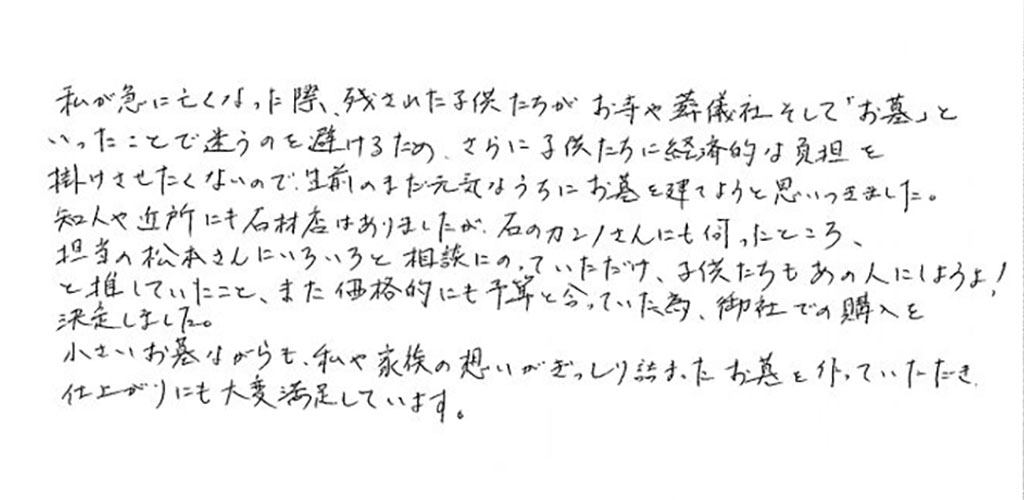 私が急に亡くなった際、残された子供たちが お寺や葬儀社そして「お墓」と
いったことで迷うのを避けるため、さらに子供たちに経済的な負担を
掛けさせたくないので、生前のまだ元気なうちにお墓を建てようと思いつきました。
知人や近所にも石材店はありましたが、石のカンノさんにも伺ったところ、
担当の松本さんにいろいろと相談にのっていただけ、子供たちもあの人にしようよ!
と推していたこと、また価格的にも予算と合っていた為、御社での購入を
決定しました。
小さいお墓ながらも、私や家族の想いがぎっしり詰まったお墓を作っていただき、
仕上がりにも大変満足しています。